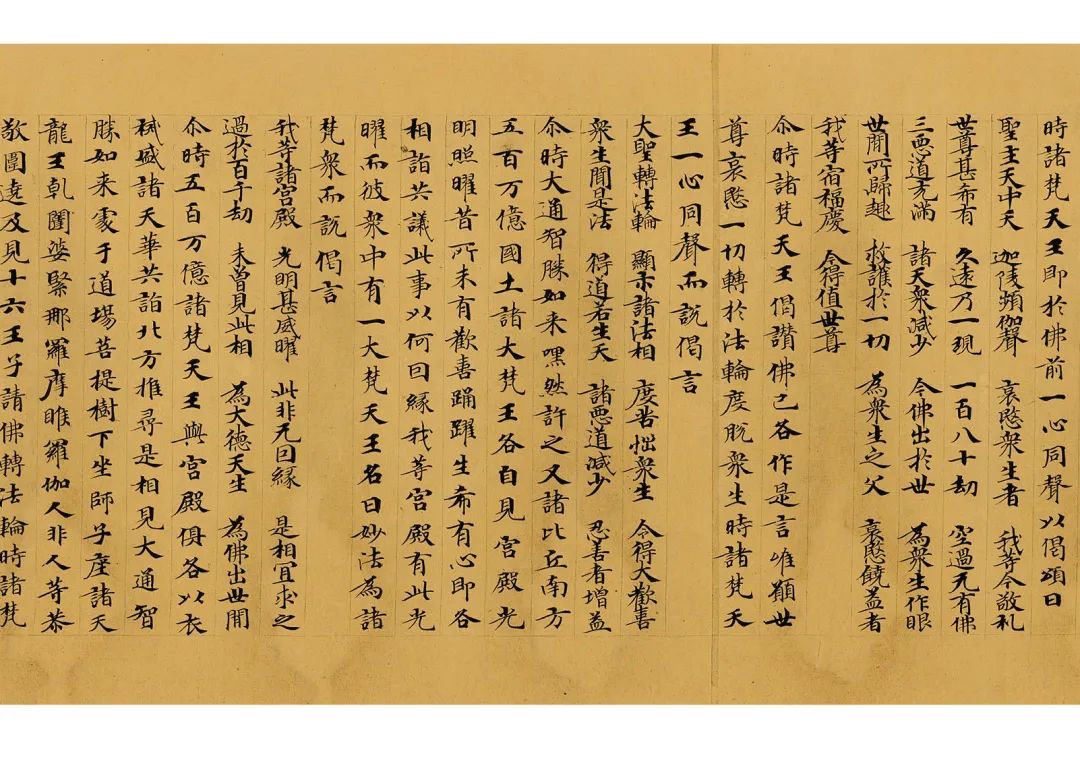 時諸梵天王即於佛前一心同聲以偈頌曰
聖主天中天 迦陵頻伽聲 哀愍衆生者 我等今敬礼
世尊甚希有 久遠乃一現 一百八十劫 空過无有佛
三悪道充滿 諸天衆減少 今佛出於世 為衆生作眼
世間所歸趣 救護於一切 為衆生之父 哀愍饒益者
我等宿福慶 今得值世尊
尒時諸梵天王偈讃佛已各作是言唯願世
尊哀愍一切轉於法輪度脱衆生時諸梵天
王一心同聲而說偈言
大聖轉法輪 顯示諸法相 度苦惱衆生 令得大歡喜
衆生聞是法 得道若生天 諸悪道減少 忍善者增益
尒時大通智勝如来嘿然許之又諸比丘南方
五百万億國土諸大梵王各自見宮殿光
明照曜昔所未有歡喜踊躍生希有心即各
相詣共議此事以何因緣我等宮殿有此光
曜而彼衆中有一大梵天王名曰妙法為諸
梵衆而說偈言
我等諸宮殿 光明甚威曜 此非无因緣 是相冝求之
過於百千劫 未曾見此相 為大德天生 為佛出世間
尒時五百万億諸梵天王與宮殿俱各以衣
裓盛諸天華共詣北方推尋是相見大通智
勝如来處于道場菩提樹下坐師子座諸天
龍王乹闥婆緊那羅摩睺羅伽人非人等恭
敬圍遶及見十六王子請佛轉法輪時諸梵